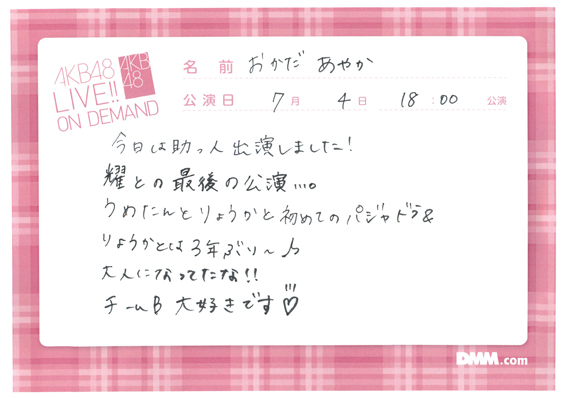 AKB48
LIVE!!
ON DEMAND
AKB
48
名 前 おかだ あやか
公演日 7月 4日 18:00 公演
今日は助っ人出演しました!
耀との最後の公演...。
うめたんとりょうかと初めてのパジャドラ&
りょうかとは3年ぶり〜♪
大人になってたな!!
チームB 大好きです♡
DMM.com